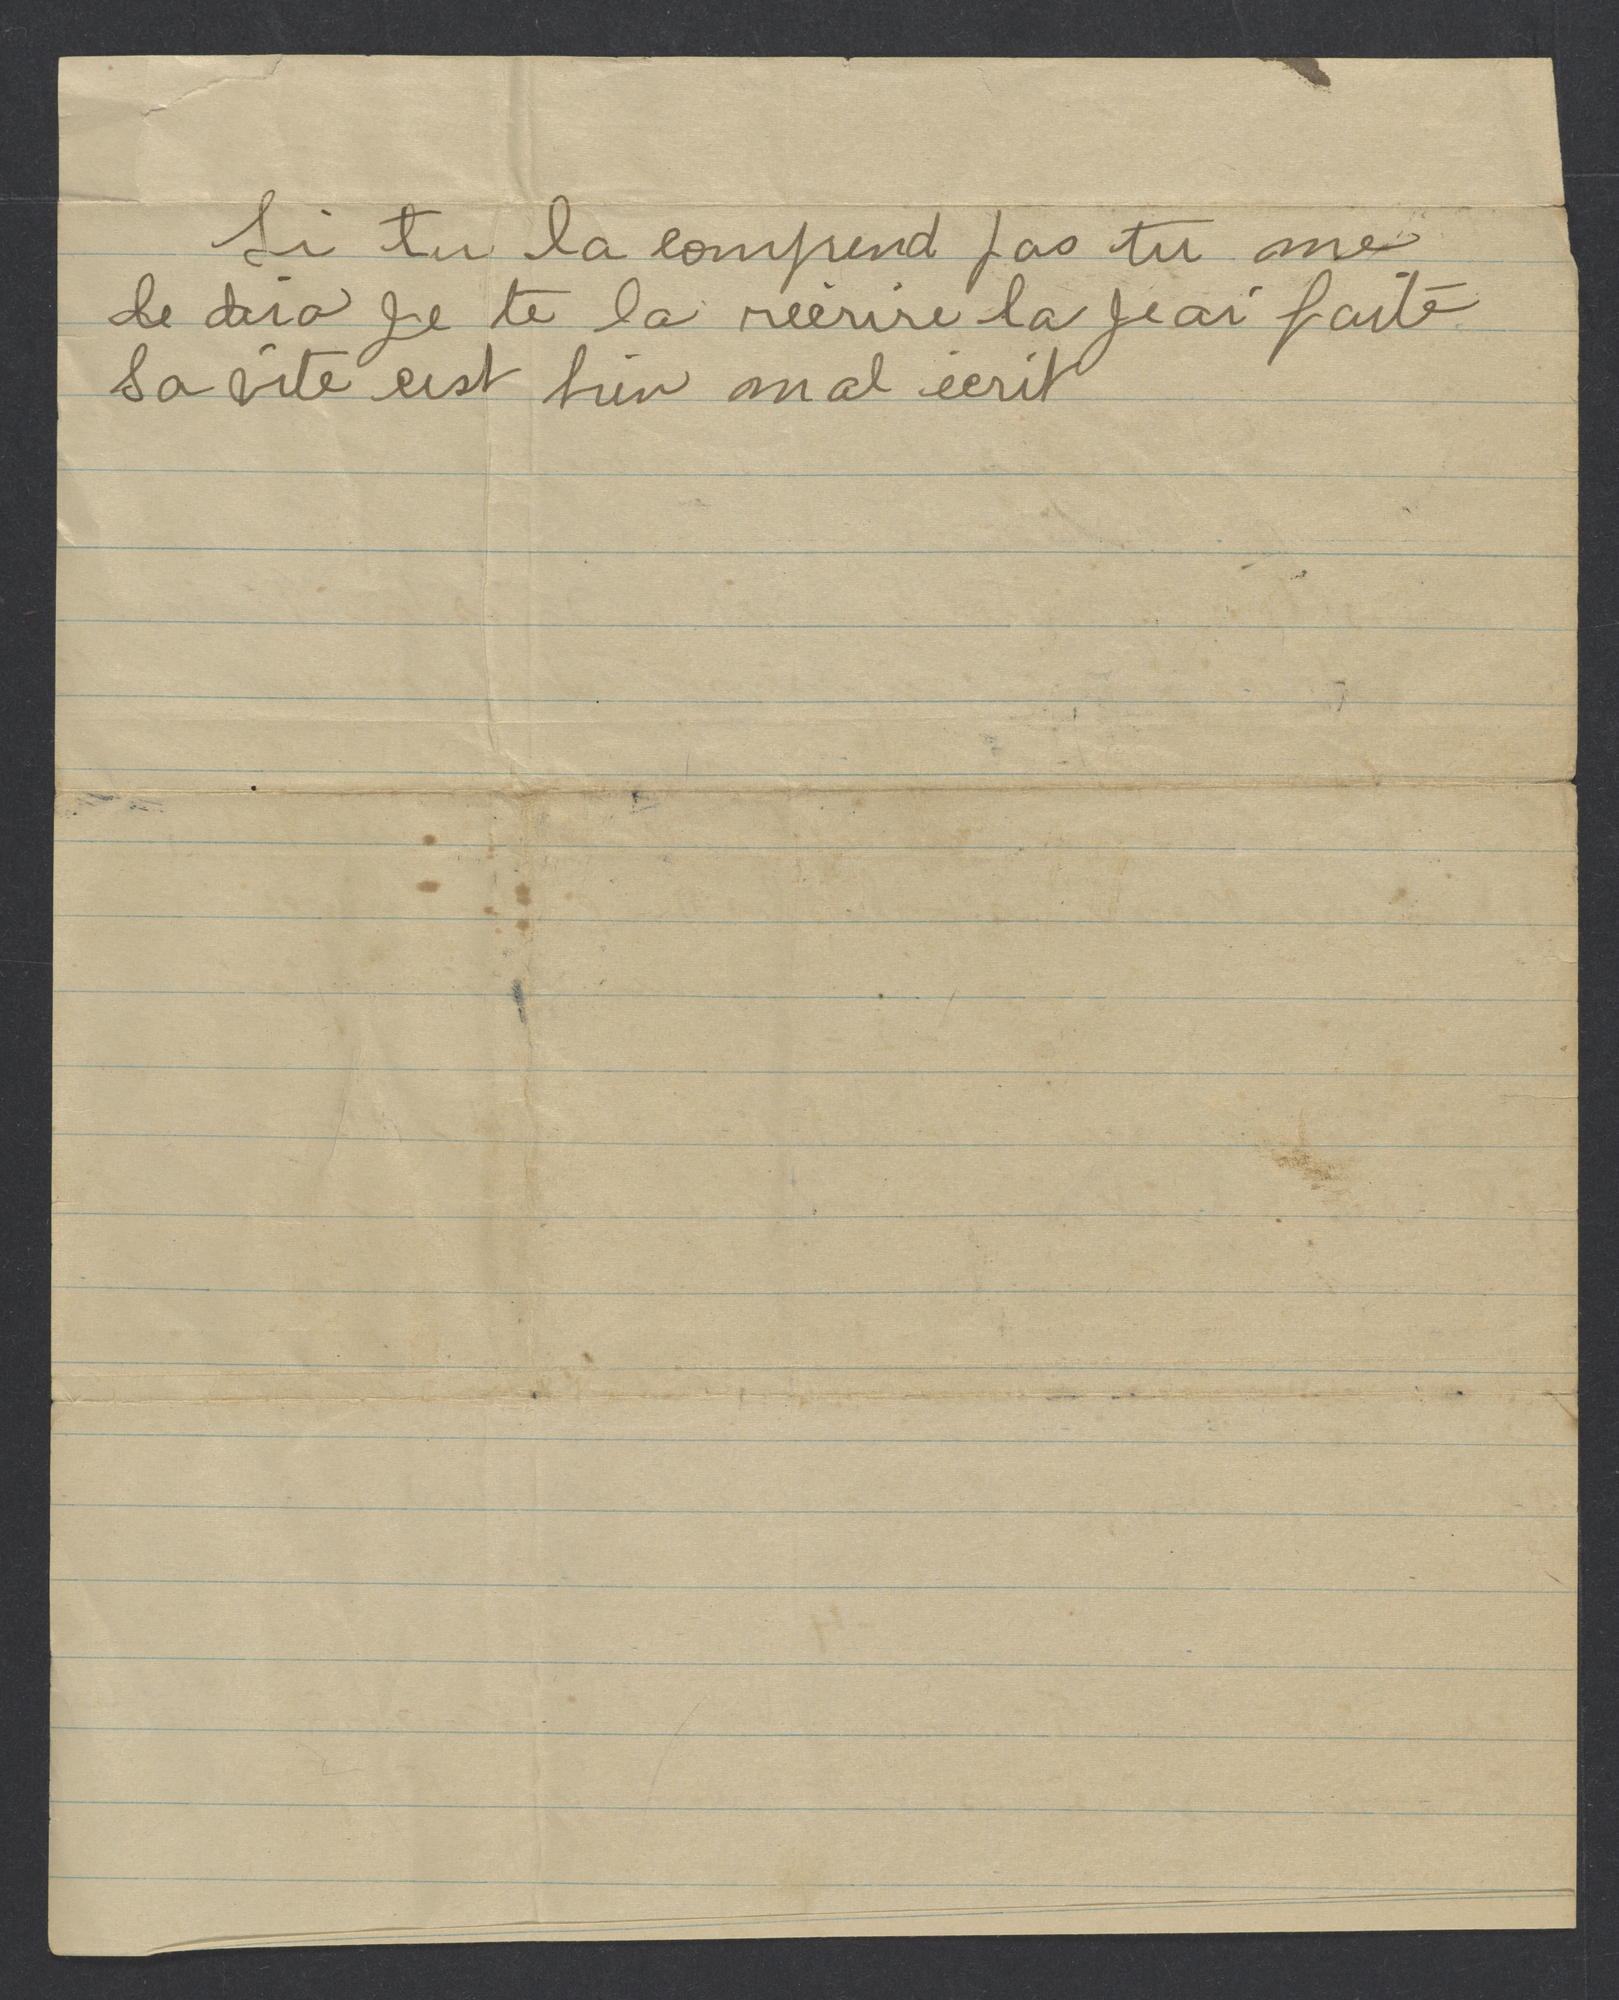 Si tu la comprend pas tu me
le dira Je te la réérire la Je ai faite
sa vite cest bien mal écrit